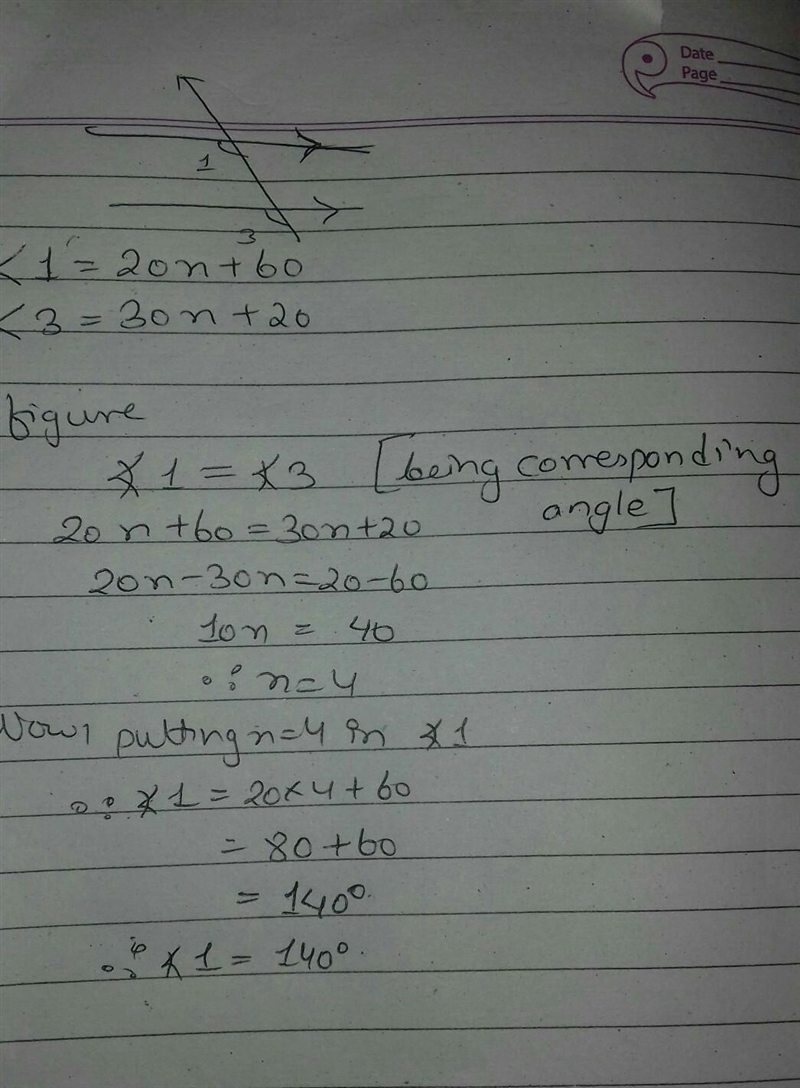 Date
Page
1
3
<1 = 20n+60
<3 = 30n+20
figure
∡1 = ∡3 [being corresponding
angle]
20n+60=30n+20
20n-30n=20-60
10n = 40
∴ n=4
Now, putting n=4 in ∡1
∴ ∡1 = 20×4+60
= 80+60
= 140°
∴ ∡1 = 140°